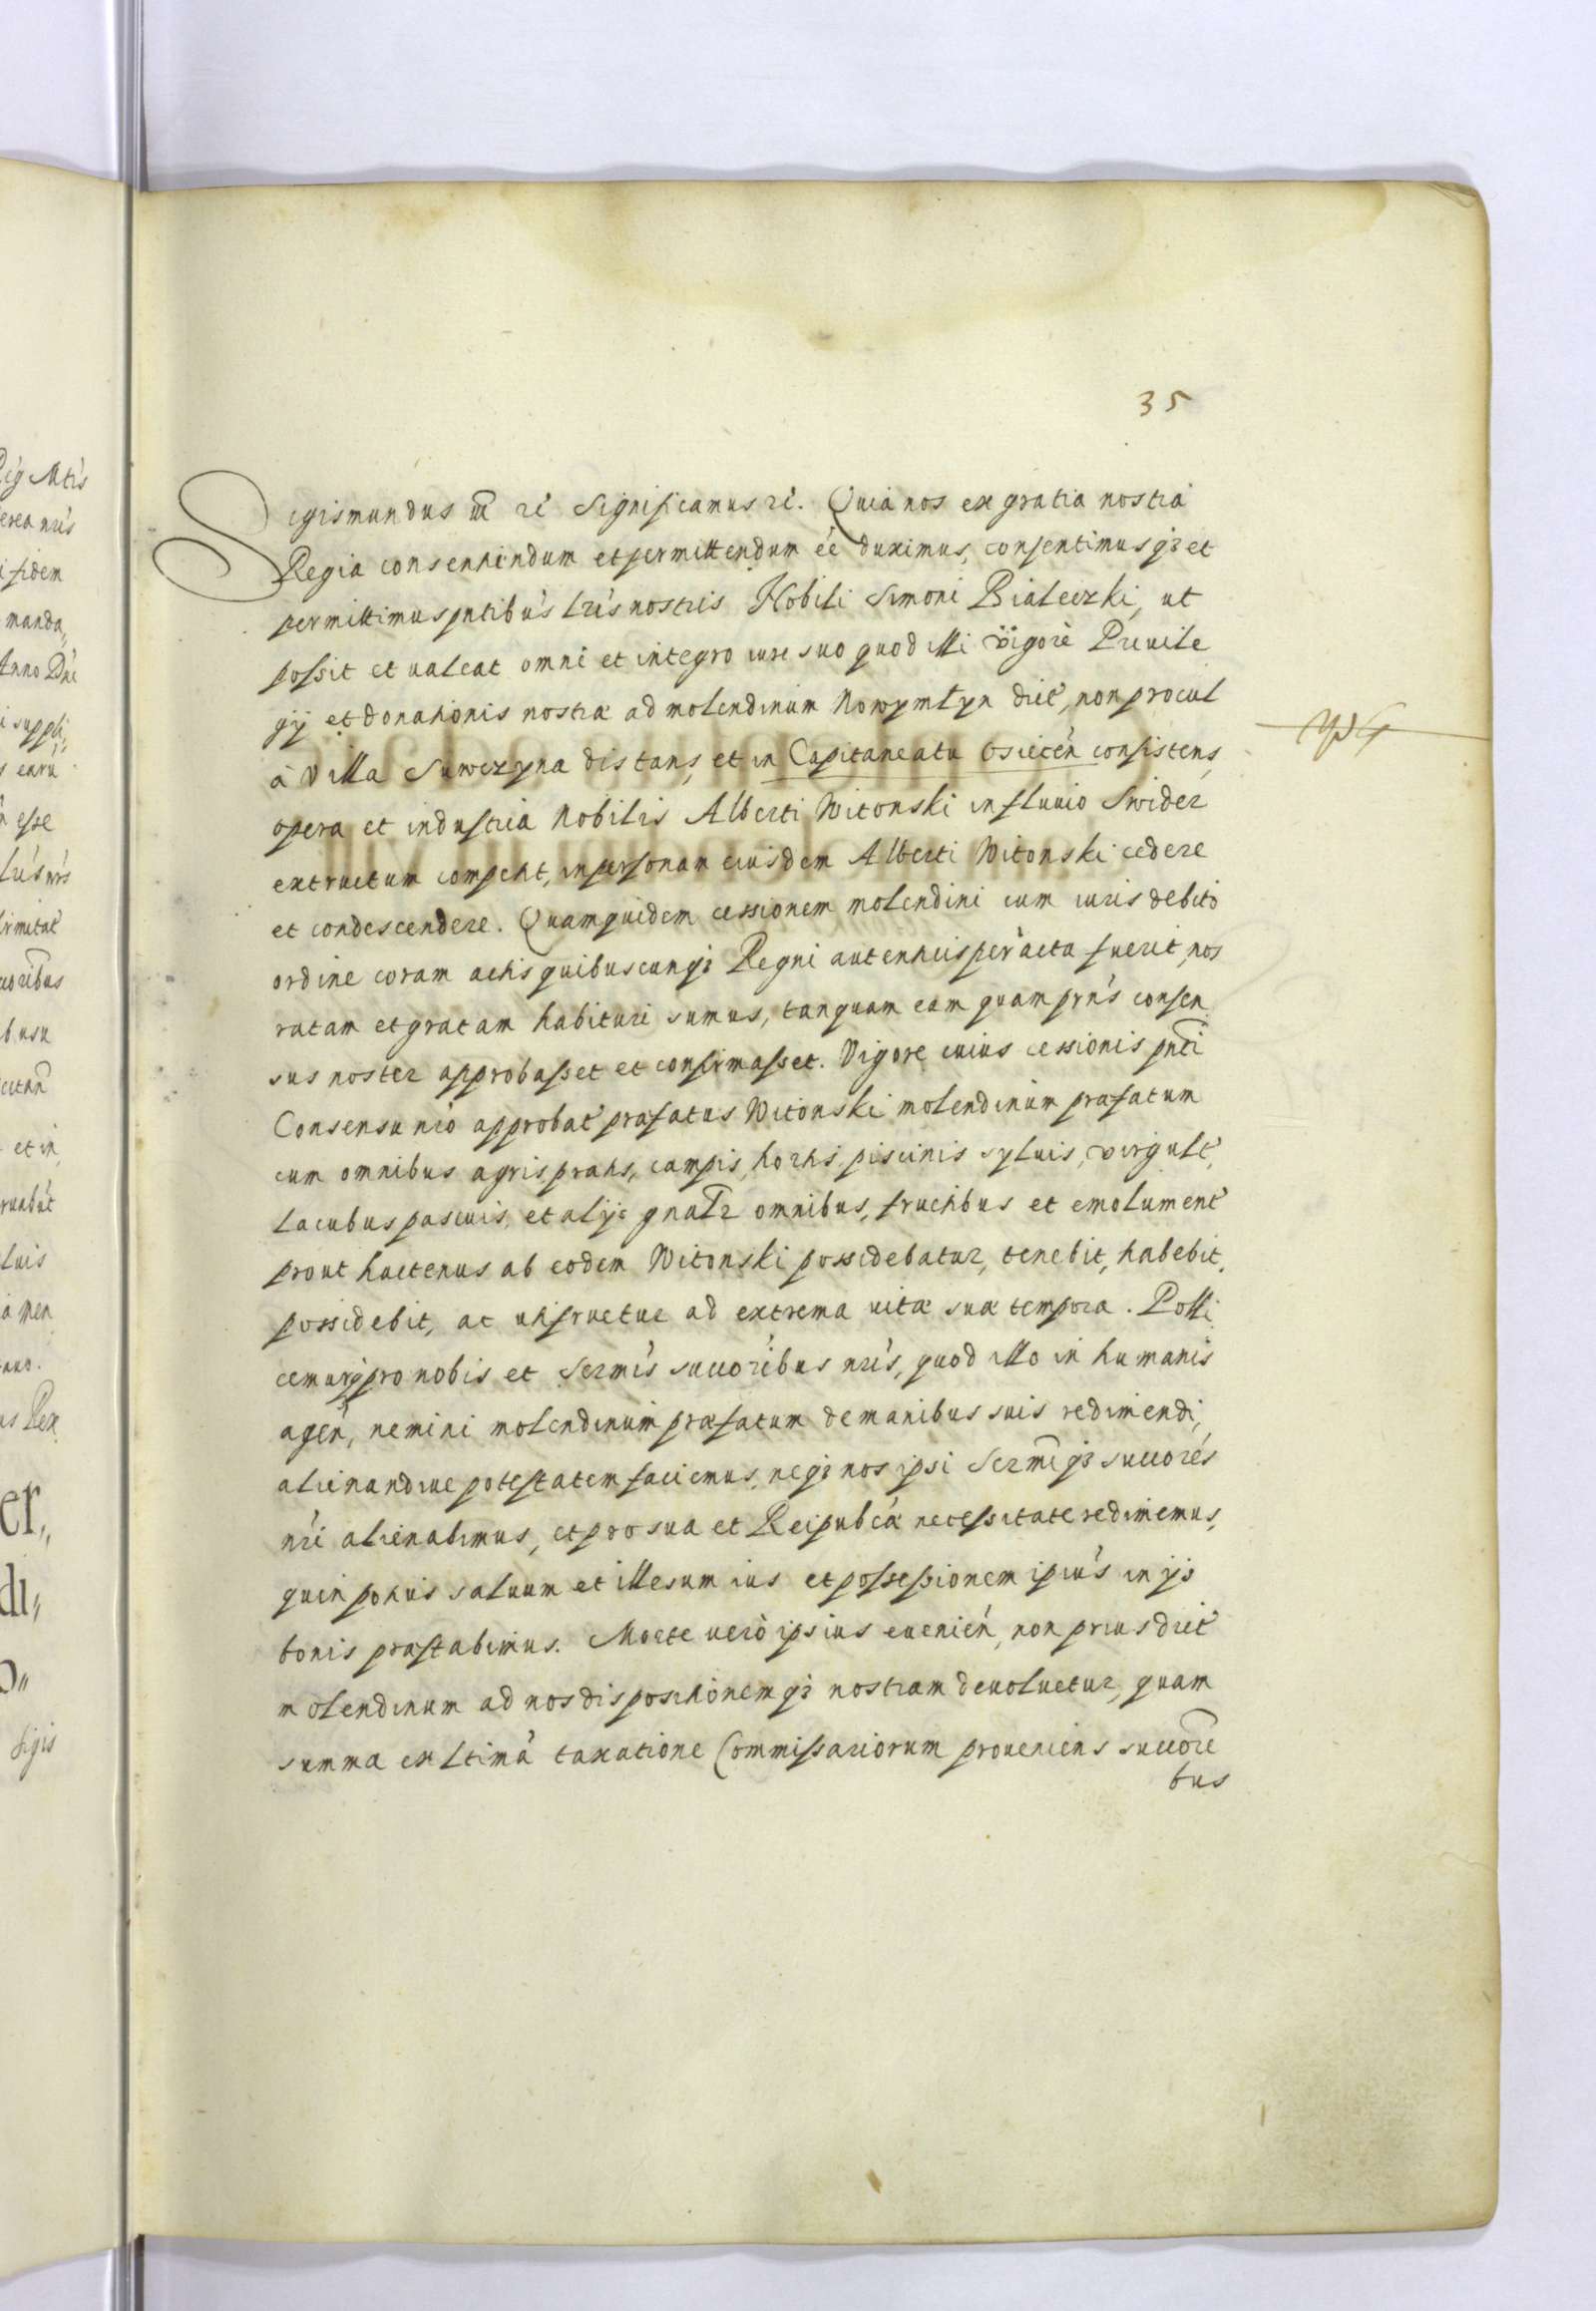 35
Sigismundus III etc Significamus etc. Quia nos ex gratia nostra
Regia consentiendum et permittendum ee duximus, consentimusq3 et
permittimus pntibus lris nostris Nobili Simoni Bialeczki, ut
possit et valeat omni et integro iure suo quod illi vigore Priuile
gij et donationis nostræ ad molendinum Nowymlyn dict, non procul
à Villa Suwczyna distans, et in Capitaneatu Osiecen consistens,
opera et industria Nobilis Alberti Witonski in fluuio Swider
extructum competit, in personam eiusdem Alberti Witonski cedere
et condescendere. Quam quidem cessionem molendini cum iuris debito
ordine coram actis quibuscunq3 Regni autenticis peracta fuerit, nos
ratam et gratam habituri sumus, tanquam eam quam prns consen
sus noster approbasset et confirmasset. Vigore cuius cessionis pnti
Consensu nro approbat præfatus Witonski molendinum præfatum
cum omnibus agris pratis, campis, hortis, piscinis syluis, virgult,
lacubus pascuis, et alijs gnalr omnibus, fructibus et emolument
prout hactenus ab eodem Witonski possidebatur, tenebit, habebit,
possidebit, ac utifruetur ad extrema uitæ suæ tempora. Polli
cemurq3 pro nobis et Sermis succoribus nris, quod illo in humanis
agen, nemini molendinum præfatum de manibus suis redimendi,
alienandiue potestatem faciemus, neq3 nos ipsi Sermiq3 succores
nri alienabimus, et pro sua et Reipubcæ necessitate redimemus,
quin potius saluum et illesum ius et possessionem ipius in ijs
bonis præstabimus. Morte uerò ipsius euenien, non prius dict
molendinum ad nos dispositionemq3 nostram deuoluetur, quam
summa ex ltima taxatione Commissariorum proueniens succori
bus